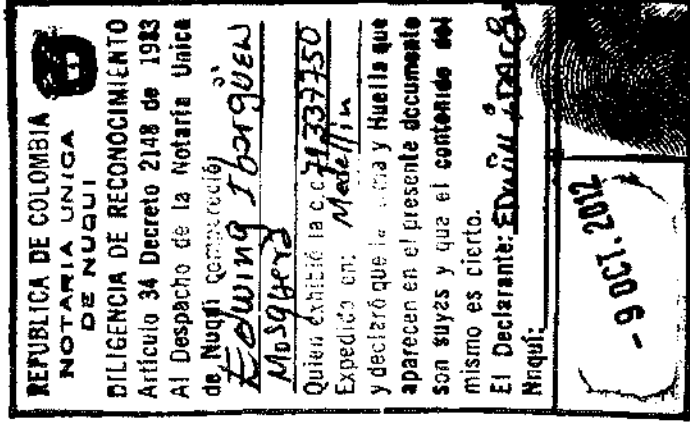 REPUBLICA DE COLOMBIA
NOTARIA UNICA
DE NUQUI
DILIGENCIA DE RECONOCIMIENTO
Artículo 34 Decreto 2148 de 1983
Al Despacho de la Notaría Unica
de Nuquí compareció
Edwing Ibarguen
Mosquera
Quien exhibió la c.c. 71337750
Expedido en: Medellin
y declaró que la firma y Huella que
aparecen en el presente documento
son suyas y que el contenido del
mismo es cierto.
El Declarante: Edwin
Nuquí:
- 9 OCT. 2012